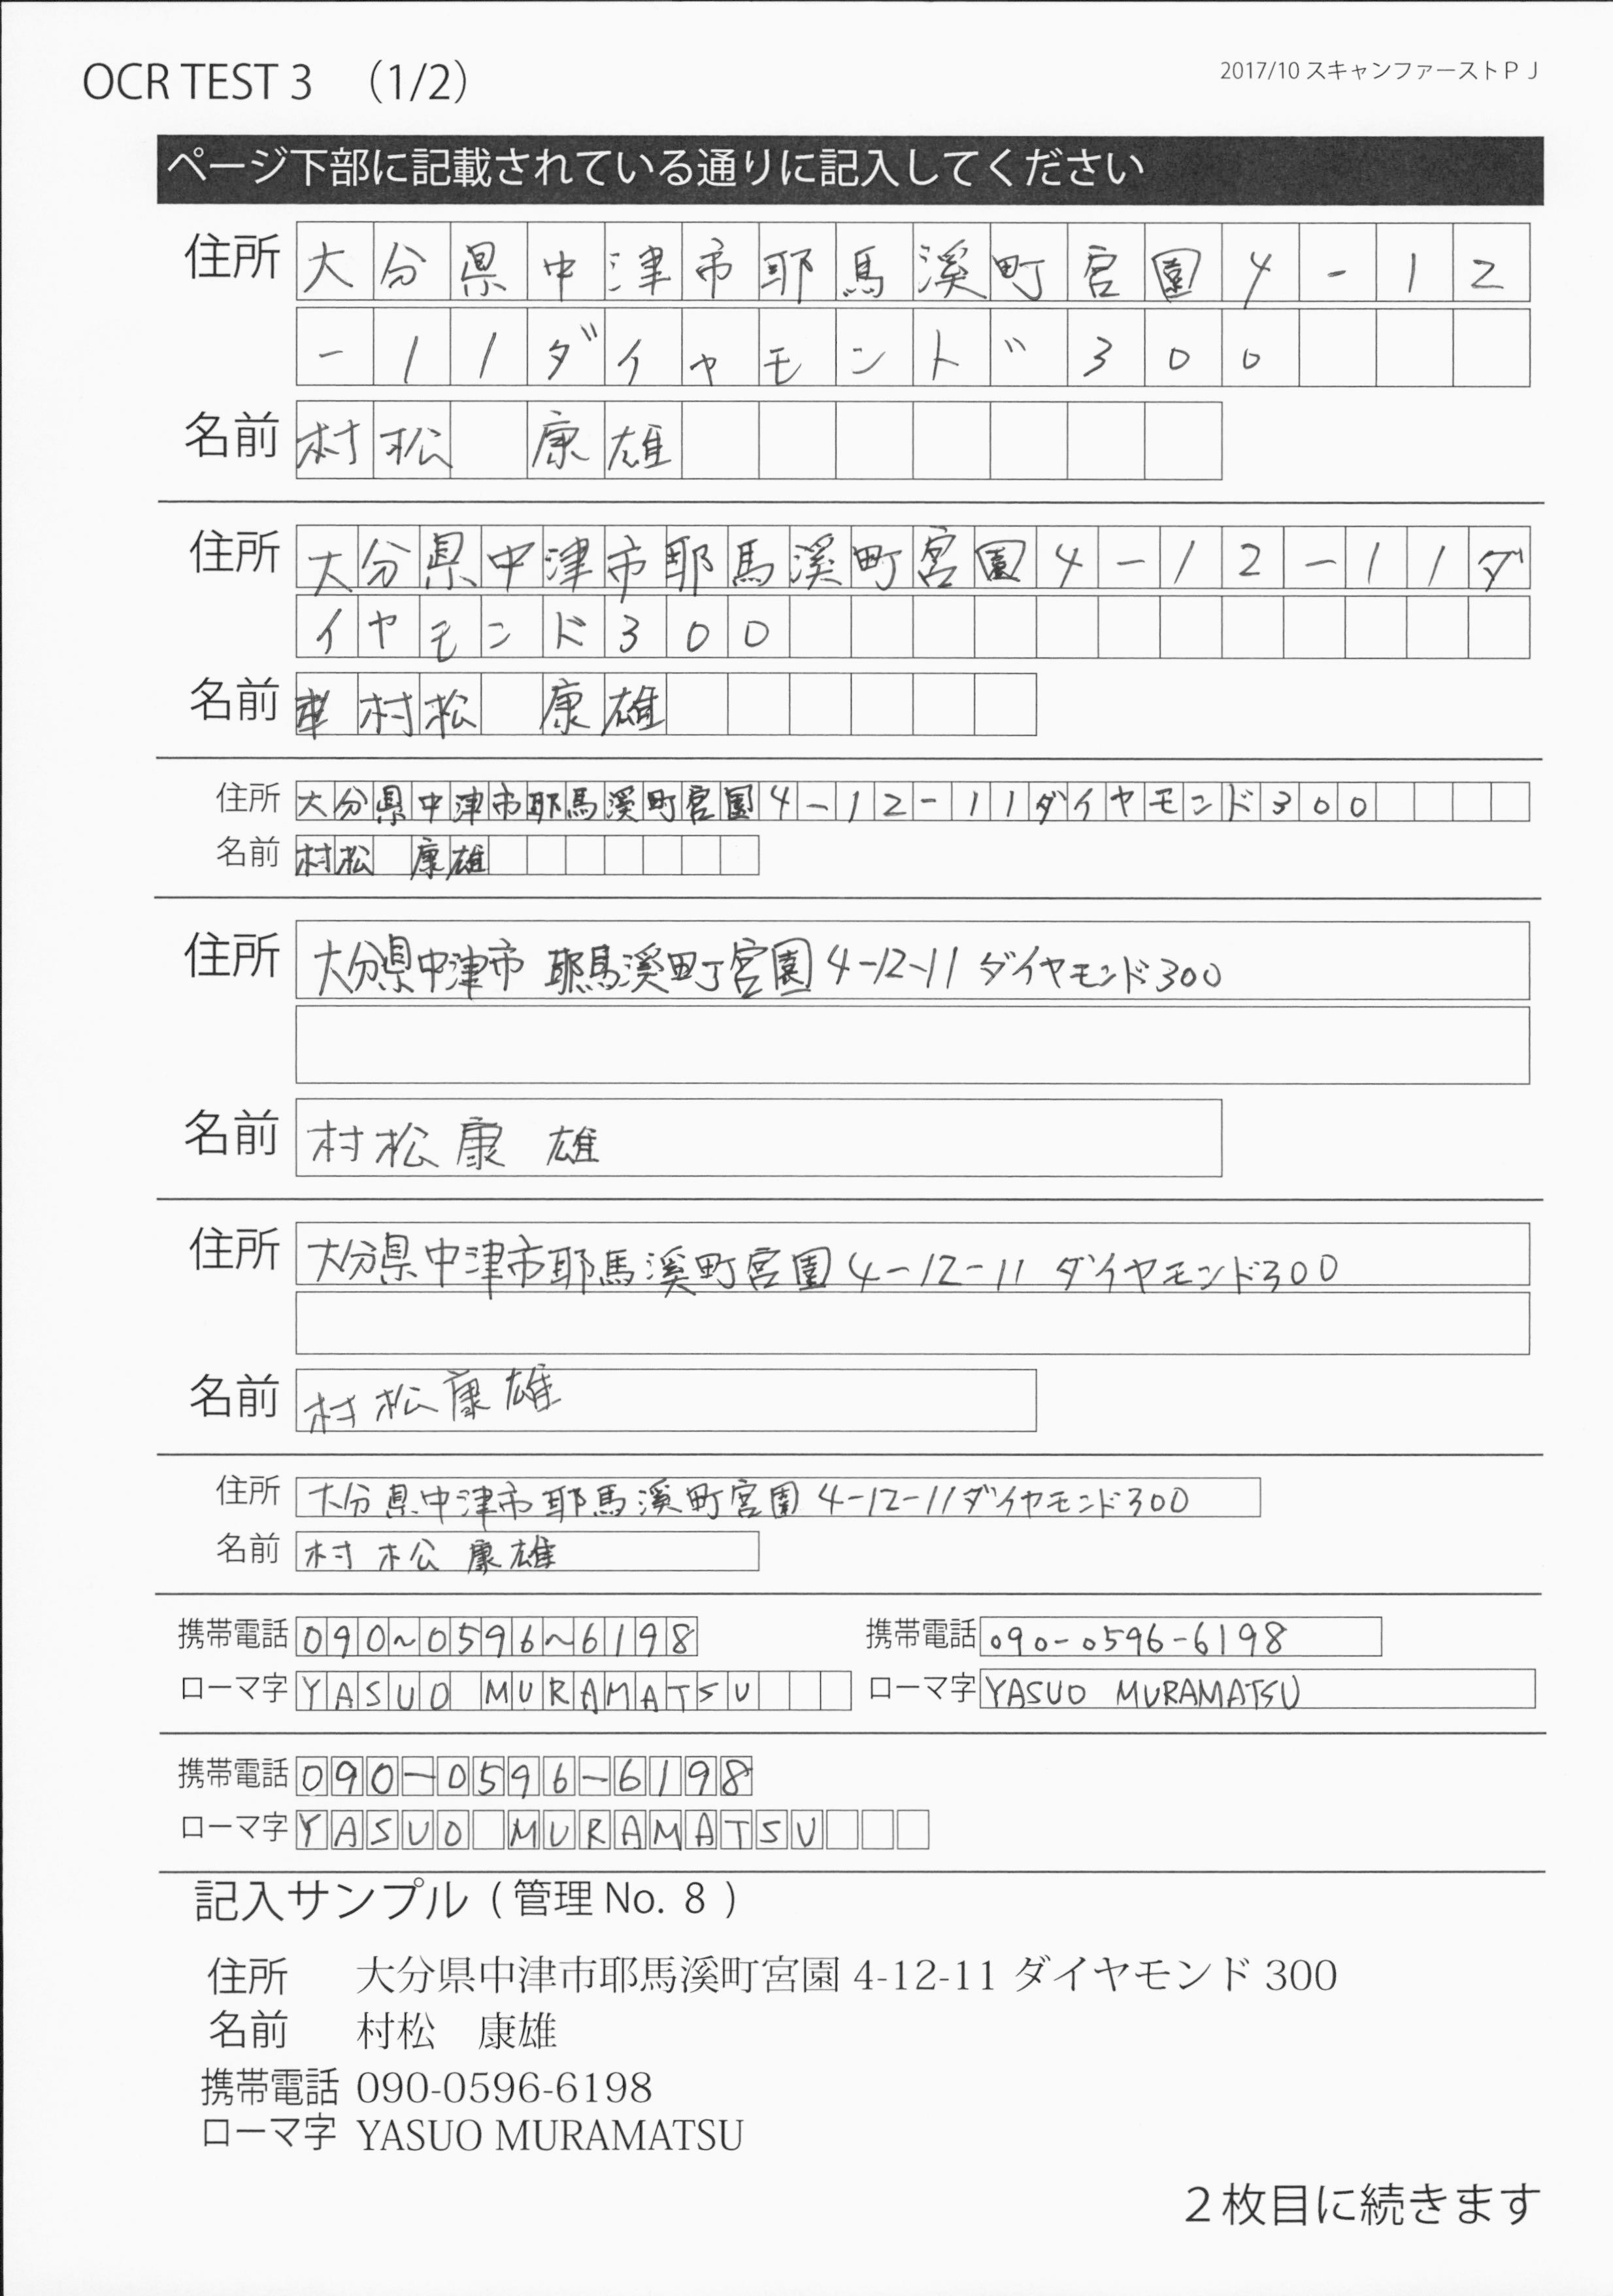 OCR TEST 3 （1/2）
2017/10 スキャンファーストＰＪ
ページ下部に記載されている通りに記入してください
住所 大分県中津市耶馬溪町宮園4-12
-11ダイヤモント゛300
名前 村松 康雄
住所 大分県中津市耶馬溪町宮園4-12-11ダ
イヤモンド300
名前 村松 康雄
住所 大分県中津市耶馬溪町宮園4-12-11ダイヤモンド300
名前 村松 康雄
住所 大分県中津市 耶馬溪町宮園4-12-11 ダイヤモンド300
名前 村松康 雄
住所 大分県中津市耶馬溪町宮園4-12-11 ダイヤモンド300
名前 村松康雄
住所 大分県中津市耶馬溪町宮園4-12-11ダイヤモンド300
名前 村松康雄
携帯電話 090~0596~6198 携帯電話 090-0596-6198
ローマ字 YASUO MURAMATSU ローマ字 YASUO MURAMATSU
携帯電話 090-0596-6198
ローマ字 YASUO MURAMATSU
記入サンプル ( 管理 No. 8 )
住所 大分県中津市耶馬溪町宮園 4-12-11 ダイヤモンド 300
名前 村松 康雄
携帯電話 090-0596-6198
ローマ字 YASUO MURAMATSU
２枚目に続きます